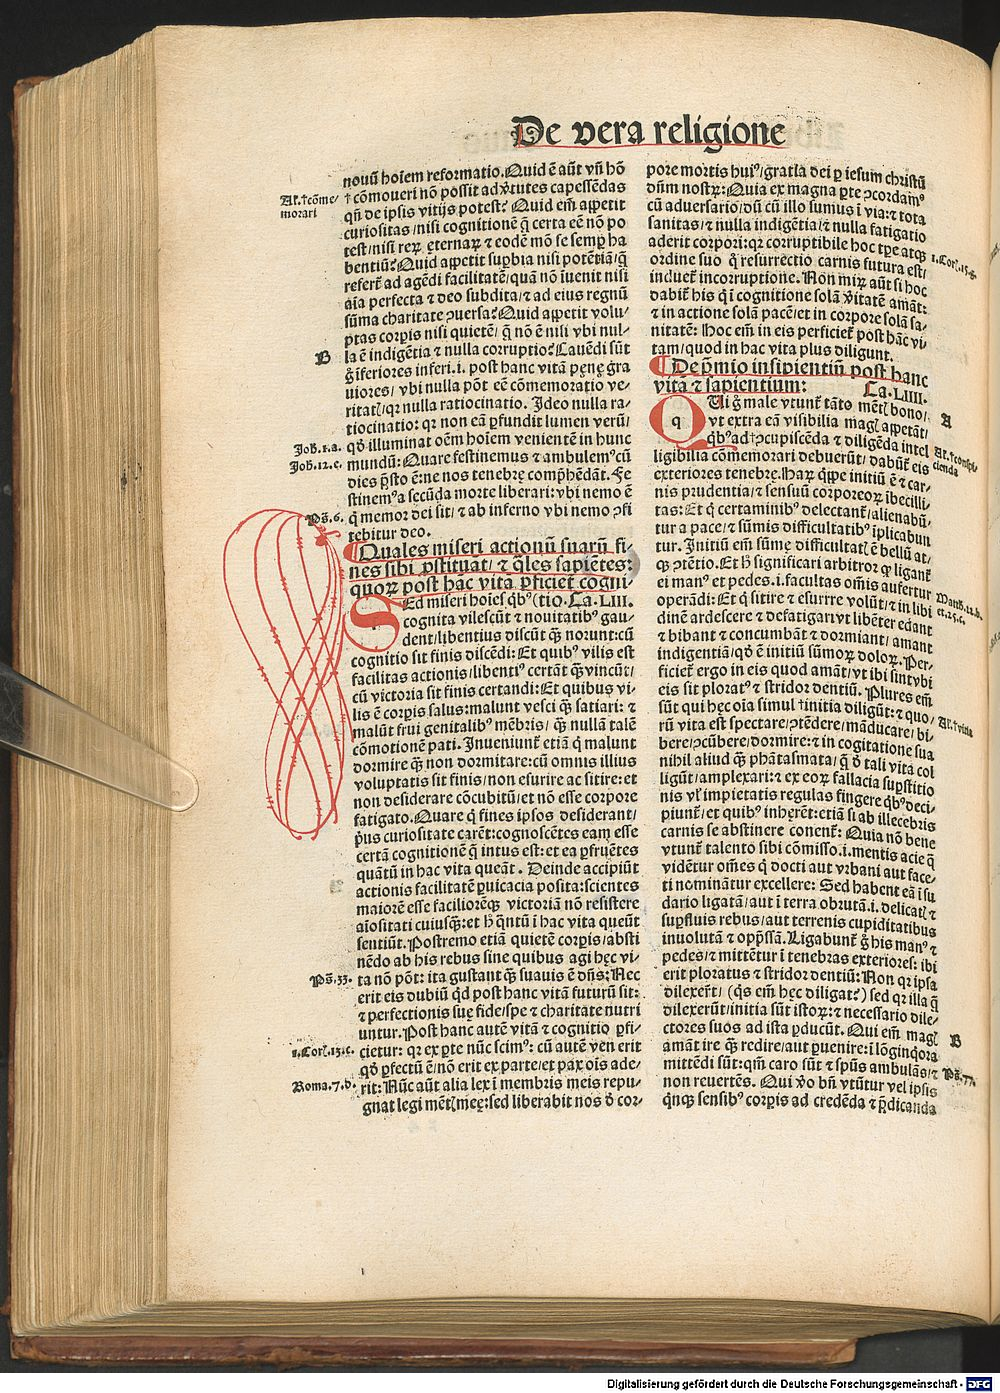 De vera religione
nouū hoīem reformatio. Quid ē aūt vn̄ hō
Al. †cōme-
morari
† cōmoueri nō possit ad v̓tutes capessēdas
qn̄ de ipsis vitijs potest? Quid em̄ appetit
curiositas/nisi cognitionē q̄ certa eē nō po
test/nisi reꝝ ęternaꝝ ⁊ eodē mō se semꝑ ha
bentiū? Quid appetit supbia nisi potētiā/q̄
refert̉ ad agēdi facilitatē/quā nō inuenit nisi
aīa perfecta ⁊ deo subdita/⁊ ad eius regnū
sūma charitate ꝯuersa? Quid appetit volu-
ptas corꝑis nisi quietē/ q̄ nō ē nisi vbi nul-
B
la ē indigētia ⁊ nulla corruptio? Cauēdi sūt
g̊ īferiores inferi.i. post hanc vitā pęnę gra
uiores/ vbi nulla pōt eē cōmemoratio ve-
ritatꝭ/qꝛ nulla ratiocinatio. Ideo nulla ra-
tiocinatio: qꝛ non eā ꝑfundit lumen verū/
Joh̄. 1. a.
qd̓ illuminat oēm hoīem venientē in hunc
Joh̄. 12. c.
mundū: Quare festinemus ⁊ ambulemꝰ cū
dies p̄sto ē: ne nos tenebrę comp̄hēdāt. Fe
stinemꝰ a secūda morte liberari: vbi nemo ē
Ps̄. 6.
q̇ memor dei sit/ ⁊ ab inferno vbi nemo ꝯfi
tebitur deo.
¶ Quales miseri actionū suarū fi-
nes sibi ꝯstituāt/ ⁊ q̄les sapiētes:
quoꝝ post hāc vitā ꝑficiet̉ cogni-
(tio. Ca. LIII.
SEd miseri hoīes qbꝰ
cognita vilescūt ⁊ nouitatibꝰ gau-
dent/libentius discūt qꝫ norunt: cū
cognitio sit finis discēdi: Et quibꝰ vilis est
facilitas actionis/libentiꝰ certāt qꝫ vincūt/
cū victoria sit finis certandi: Et quibus vi-
lis ē corꝑis salus: malunt vesci qꝫ satiari: ⁊
malūt frui genitalibꝰ mēbris/ qꝫ nullā talē
cōmotionē pati. Inueniunt̉ etiā q̇ malunt
dormire qꝫ non dormitare: cū omnis illius
voluptatis sit finis/non esurire ac sitire: et
non desiderare cōcubitū/et nō esse corpore
fatigato. Quare q̇ fines ipsos desiderant/
p̄us curiositate carēt: cognoscētes eam esse
certā cognitionē q̄ intus est: et ea ꝑfruētes
quātū in hac vita queāt. Deinde accipiūt
actionis facilitatē ꝑuicacia posita: scientes
maiorē esse faciliorēqꝫ victoriā nō resistere
aīositati cuiusqꝫ: et h̄ qn̄tū ī hac vita queūt
sentiūt. Postremo etiā quietē corꝑis/absti
nēdo ab his rebus sine quibus agi hęc vi-
Ps̄. 33.
ta nō pōt: ita gustant qꝫ suauis ē dn̄s: Nec
erit eis dubiū qd̓ post hanc vitā futurū sit:
⁊ perfectionis suę fide/spe ⁊ charitate nutri
untur. Post hanc autē vitā ⁊ cognitio ꝑfi-
1. Cor̄. 13. c.
cietur: qꝛ ex ꝑte nūc scimꝰ: cū autē ven erit
qd̓ ꝑfectū ē/nō erit ex parte/et pax oīs ade-
Roma. 7. b.
rit: Nūc aūt alia lex ī membris meis repu-
gnat legi mētꝭ męę: sed liberabit nos d̓ cor-
pore mortis huiꝰ/gratia dei ꝑ iesum christū
dn̄m nostꝝ: Quia ex magna ꝑte ꝯcordamꝰ
cū aduersario/dū cū illo sumus ī via: ⁊ tota
sanitas/⁊ nulla indigētia/⁊ nulla fatigatio
aderit corpori: qꝛ corruptibile hoc tꝑe atqꝫ
1. Cor̄. 15. g.
ordine suo q̊ resurrectio carnis futura est/
induet̉ incorruptione. Non miꝝ aūt si hoc
dabit̉ his q̇ ī cognitione solā v̓itatē amāt:
⁊ in actione solā pacē/et in corpore solā sa-
nitatē: Hoc em̄ in eis perficiet̉ post hāc vi-
tam/quod in hac vita plus diligunt.
¶ De p̄mio insipientiū post hanc
vitā ⁊ sapientium: Ca. LIIII.
A
QUi g̊ male vtunt̉ tāto mētꝭ bono/
vt extra eā visibilia magꝭ appetāt/
Al. †conspi-
cienda
qbꝰ ad †ꝯcupiscēda ⁊ diligēda intel
ligibilia cōmemorari debuerūt/ dabūt̉ eis
exteriores tenebrę. Haꝝ q̇ppe initiū ē ⁊ car-
nis prudentia/ ⁊ sensuū corporeoꝝ ībecilli-
tas: Et q̇ certaminibꝰ delectant̉/alienabū-
tur a pace/⁊ sūmis difficultatibꝰ īplicabun
tur. Initiū em̄ sūmę difficultatꝭ ē bellū at-
qꝫ ꝯtētio. Et h̄ significari arbitror ꝙ ligant̉
ei manꝰ et pedes. i. facultas om̄is aufertur
Math̄. 22. b.
et. 25. c.
operādi: Et q̇ sitire ⁊ esurire volūt/⁊ in libi
dinē ardescere ⁊ defatigari/vt libēter edant
⁊ bibant ⁊ concumbāt ⁊ dormiant/ amant
indigentiā/qd̓ ē initiū sūmoꝝ doloꝝ. Per-
ficiet̉ ergo in eis quod amāt/vt ibi sint vbi
eis sit ploratꝰ ⁊ stridor dentiū. Plures em̄
Al. †vitia
sūt qui hęc oīa simul †initia diligūt: ⁊ quo-
rū vita est spectare/ꝯtēdere/māducare/ bi-
bere/ꝯcūbere/dormire: ⁊ in cogitatione sua
nihil aliud qꝫ phātasmata/ q̄ d̓ tali vita col
ligūt/amplexari: ⁊ ex eoꝝ fallacia supstitio
nis vl̓ impietatis regulas fingere qbꝰ deci-
piunt̉/et quibꝰ inhęrēt: etiā si ab illecebris
carnis se abstinere conent̉: Quia nō bene
vtunt̉ talento sibi cōmisso.i. mentis acie q̄
vidētur om̄es q̇ docti aut vrbani aut face-
ti nominātur excellere: Sed habent eā ī su
dario ligatā/aut ī terra obrutā.i. delicatꝭ ⁊
supfluis rebus/aut terrenis cupiditatibus
inuolutā ⁊ opp̄ssā. Ligabunt̉ g̊ his manꝰ ⁊
pedes/⁊ mittētur ī tenebras exteriores: ibi
erit ploratus ⁊ stridor dentiū: Non qꝛ ipsa
dilexert̄/ (qs em̄ hęc diligat?) sed qꝛ illa q̄
dilexerūt/initia sūt istoꝝ: ⁊ necessario dile-
ctores suos ad ista ꝑducūt. Qui em̄ magꝭ
B
amāt ire qꝫ redire/aut ꝑuenire: ī lōginqͦora
mittēdi sūt: qm̄ caro sūt ⁊ spūs ambulās/⁊
Ps̄. 77.
non reuertēs. Qui v̓o bn̄ vtūtur vel ipsis
qn̄qꝫ sensibꝰ corꝑis ad credēda ⁊ p̄dicanda